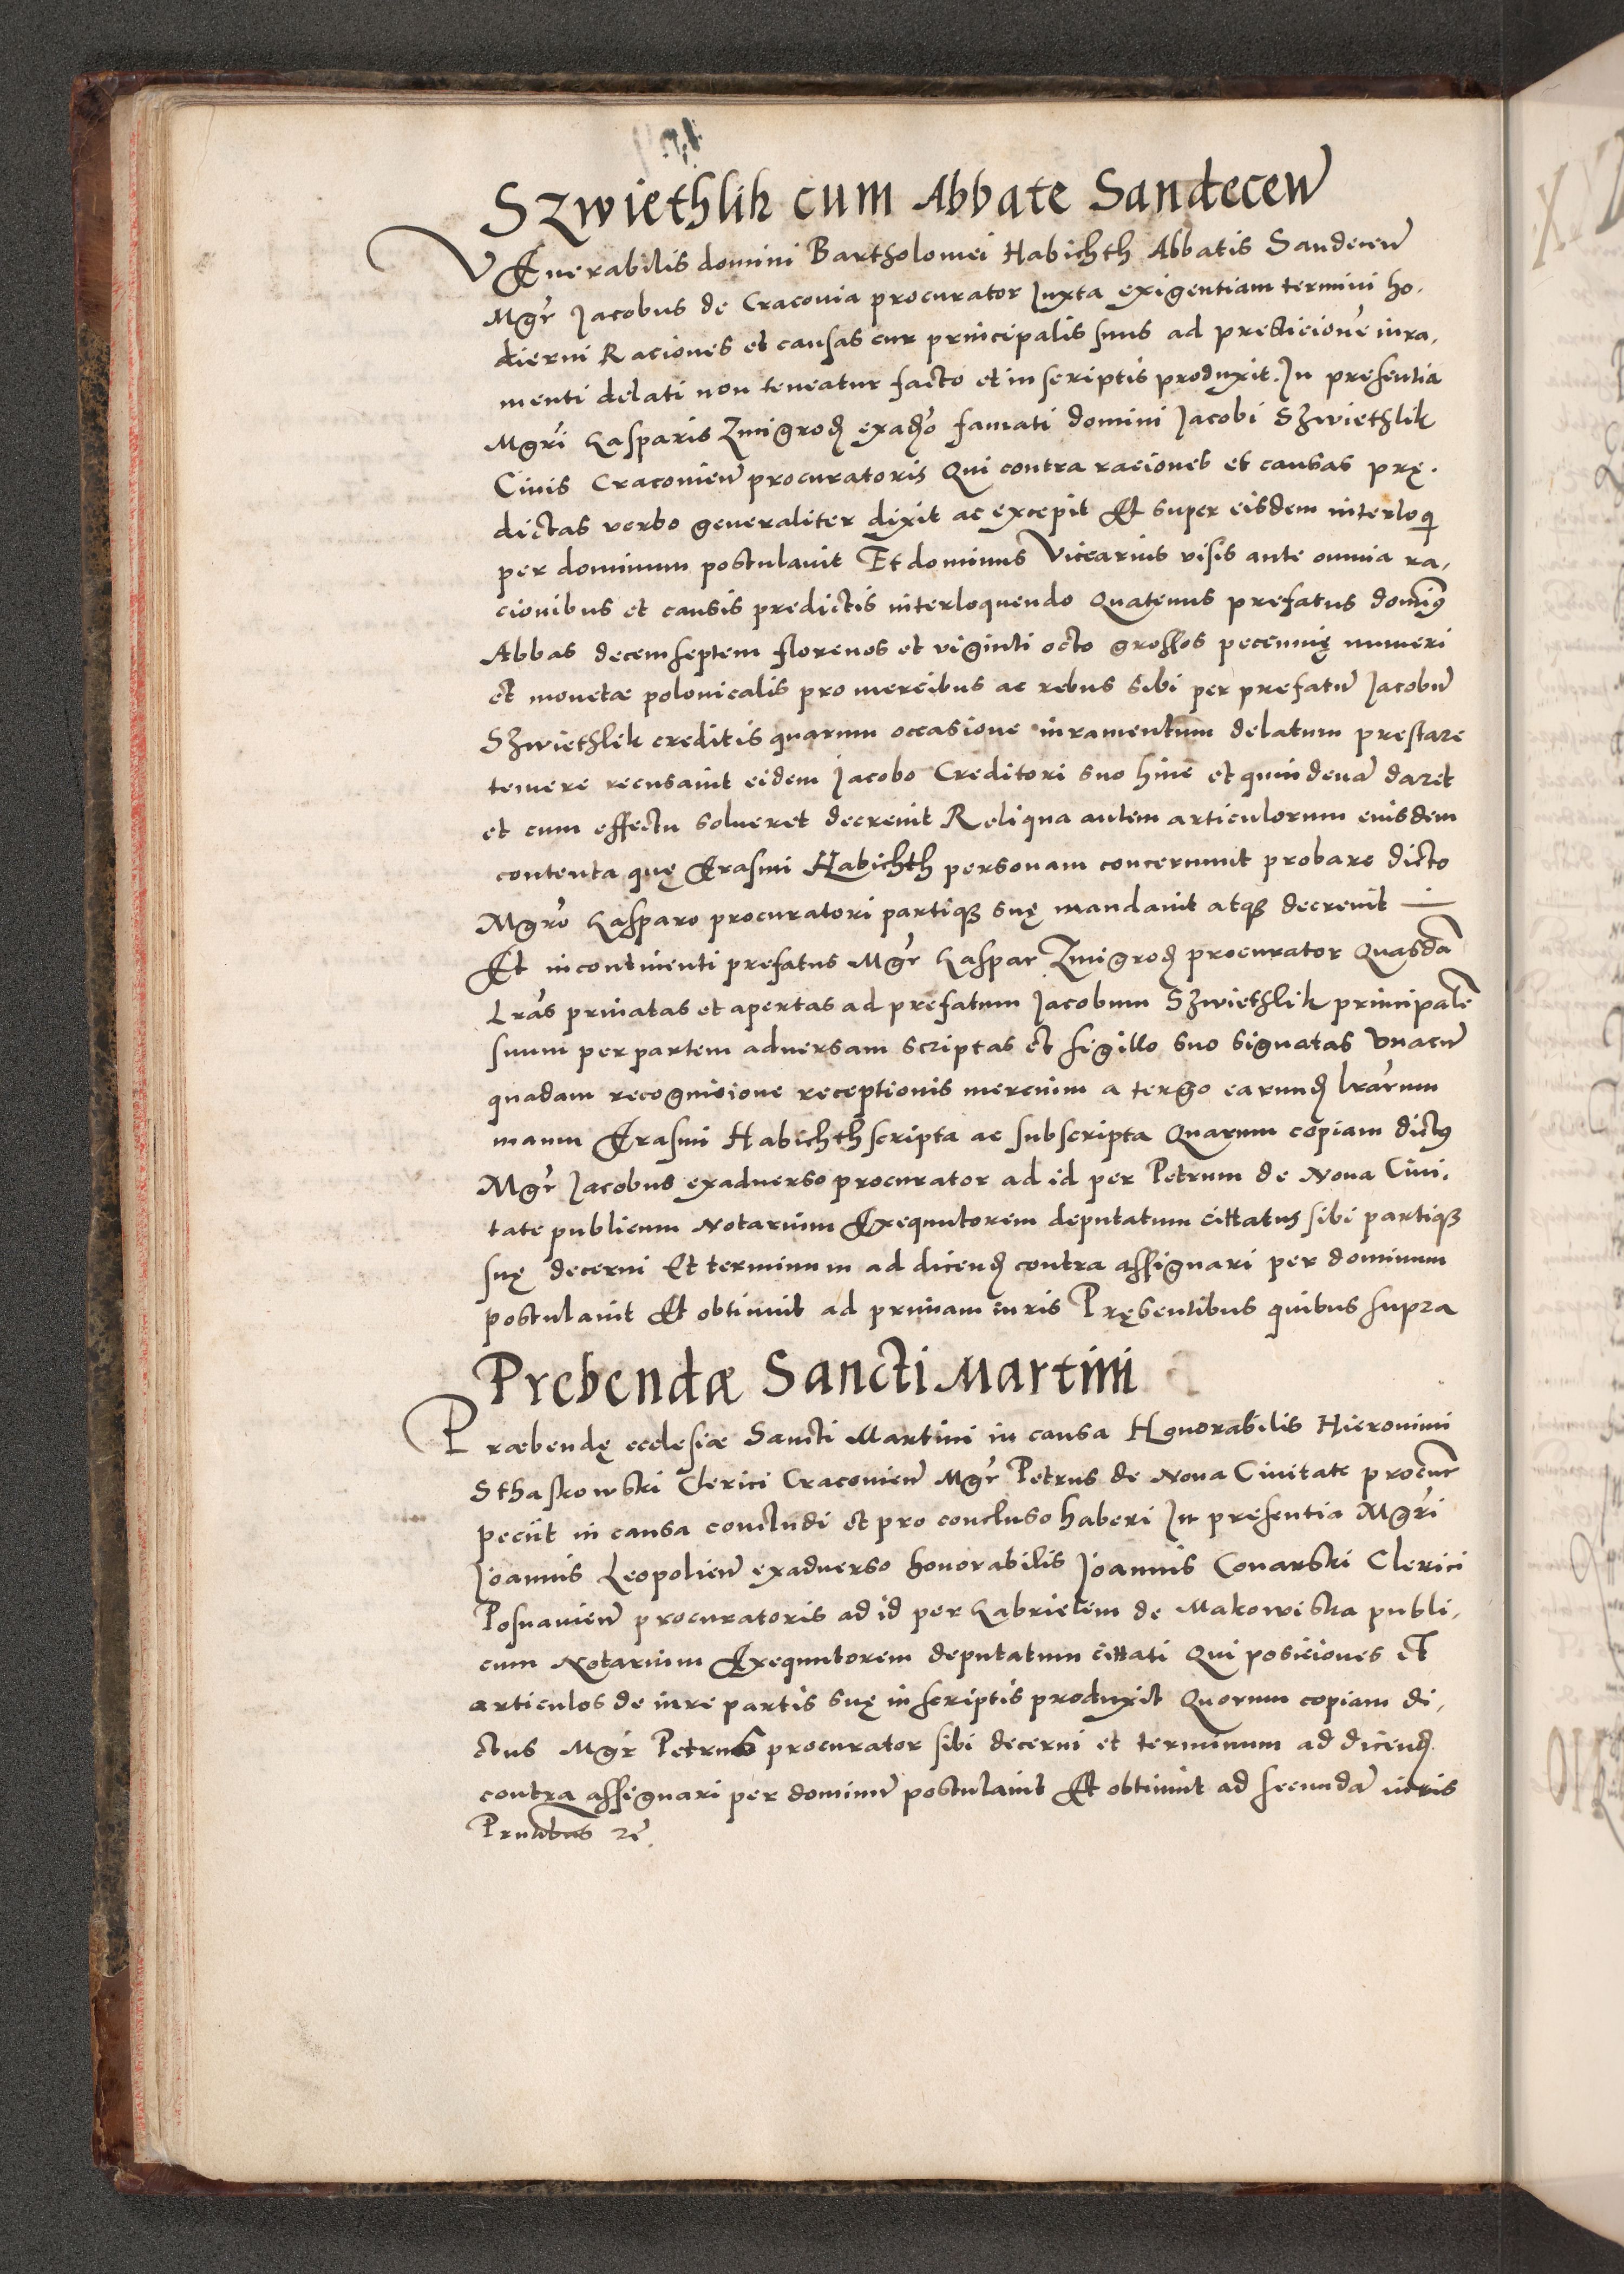 Szwiethlik cum Abbate Sandecen̄
Venerabilis domini Bartholomei Habichth Abbatis Sandecen̄
Mgr̄ Jacobus de Cracouia procurator Juxta exigentiam termini ho.
dierni Raciones et causas cur principalis suus ad prestacionē iura,
menti delati non teneatur facto et in scriptis produxit. In presentia
Mgr̄i Gasparis Zmigroꝺ exaꝺo famati domini Jacobi Szwiethlik
Ciuis Cracouien̄ procuratoris Qui contra raciones et causas prę.
dictas verbo generaliter dixit ac excepit Et super eisdem interloqi
per dominum postulauit Et dominus Vicearius visis ante omnia ra,
cionibus et causis predictis interloquendo Quatenus prefatus dominꝰ
Abbas decemseptem florenos et viginti octo grossos pecunię numeri
et monetæ polonicalis pro mercibus ac rebus sibi per prefatū Jacobū
Szwiethlik creditis quarum occasione iuramentum delatum prestare
temere recusauit eidem Jacobo Creditori suo hinc et quindenā daret
et cum effectu solueret decreuit Reliqua autem articulorum eiusdem
contenta quę Erasmi Habichth personam concernunt probare dicto
Mgr̄o Gasparo procuratori partiqꝫ suę mandauit atqꝫ decreuit —
Et incontinenti prefatus Mgr̄ Gaspar Zmigroꝺ procurator Quasdā
Lr̄as priuatas et apertas ad prefatum Jacobum Szwiethlik principalē
suum per partem aduersam scriptas et sigillo suo signatas Vnacū
quadam recognicione receptionis mercium a tergo earunꝺ lr̄arum
manu Erasmi Habichth scripta ac subscripta Quarum copiam dictꝰ
Mgr̄ Jacobus exaduerso procurator ad id per Petrum de Noua Ciui.
tate publicum Notarium Exequutorem deputatum cittatus sibi partiqꝫ
suę decerni Et terminum ad dicenꝺ contra assignari per dominum
postulauit Et obtinuit ad primam iuris Pręsentibus quibus supra
Prebendæ Sancti Martini
Præbendę ecclesiæ Sancti Martini in causa Honorabilis Hieronimi
Sthaskowski Clerici Cracouien̄ Mgr̄ Petrus de Noua Ciuitate procur̄
peciit in causa concludi et pro concluso haberi In presentia Mgr̄i
Joannis Leopolien̄ exaduerso honorabilis Joannis Conarski Clerici
Posnanien̄ procuratoris ad id per Gabrielem de Makowiska publi,
cum Notarium Exequutorem deputatum cittati Qui posiciones et
articulos de iure partis suę in scriptis produxit Quorum copiam di,
ctus Mgr̄ Petrus procurator sibi decerni et terminum ad dicenꝺ
contra assignari per dominū postulauit Et obtinuit ad secundā iuris
Pr̄ntibus zc̄.